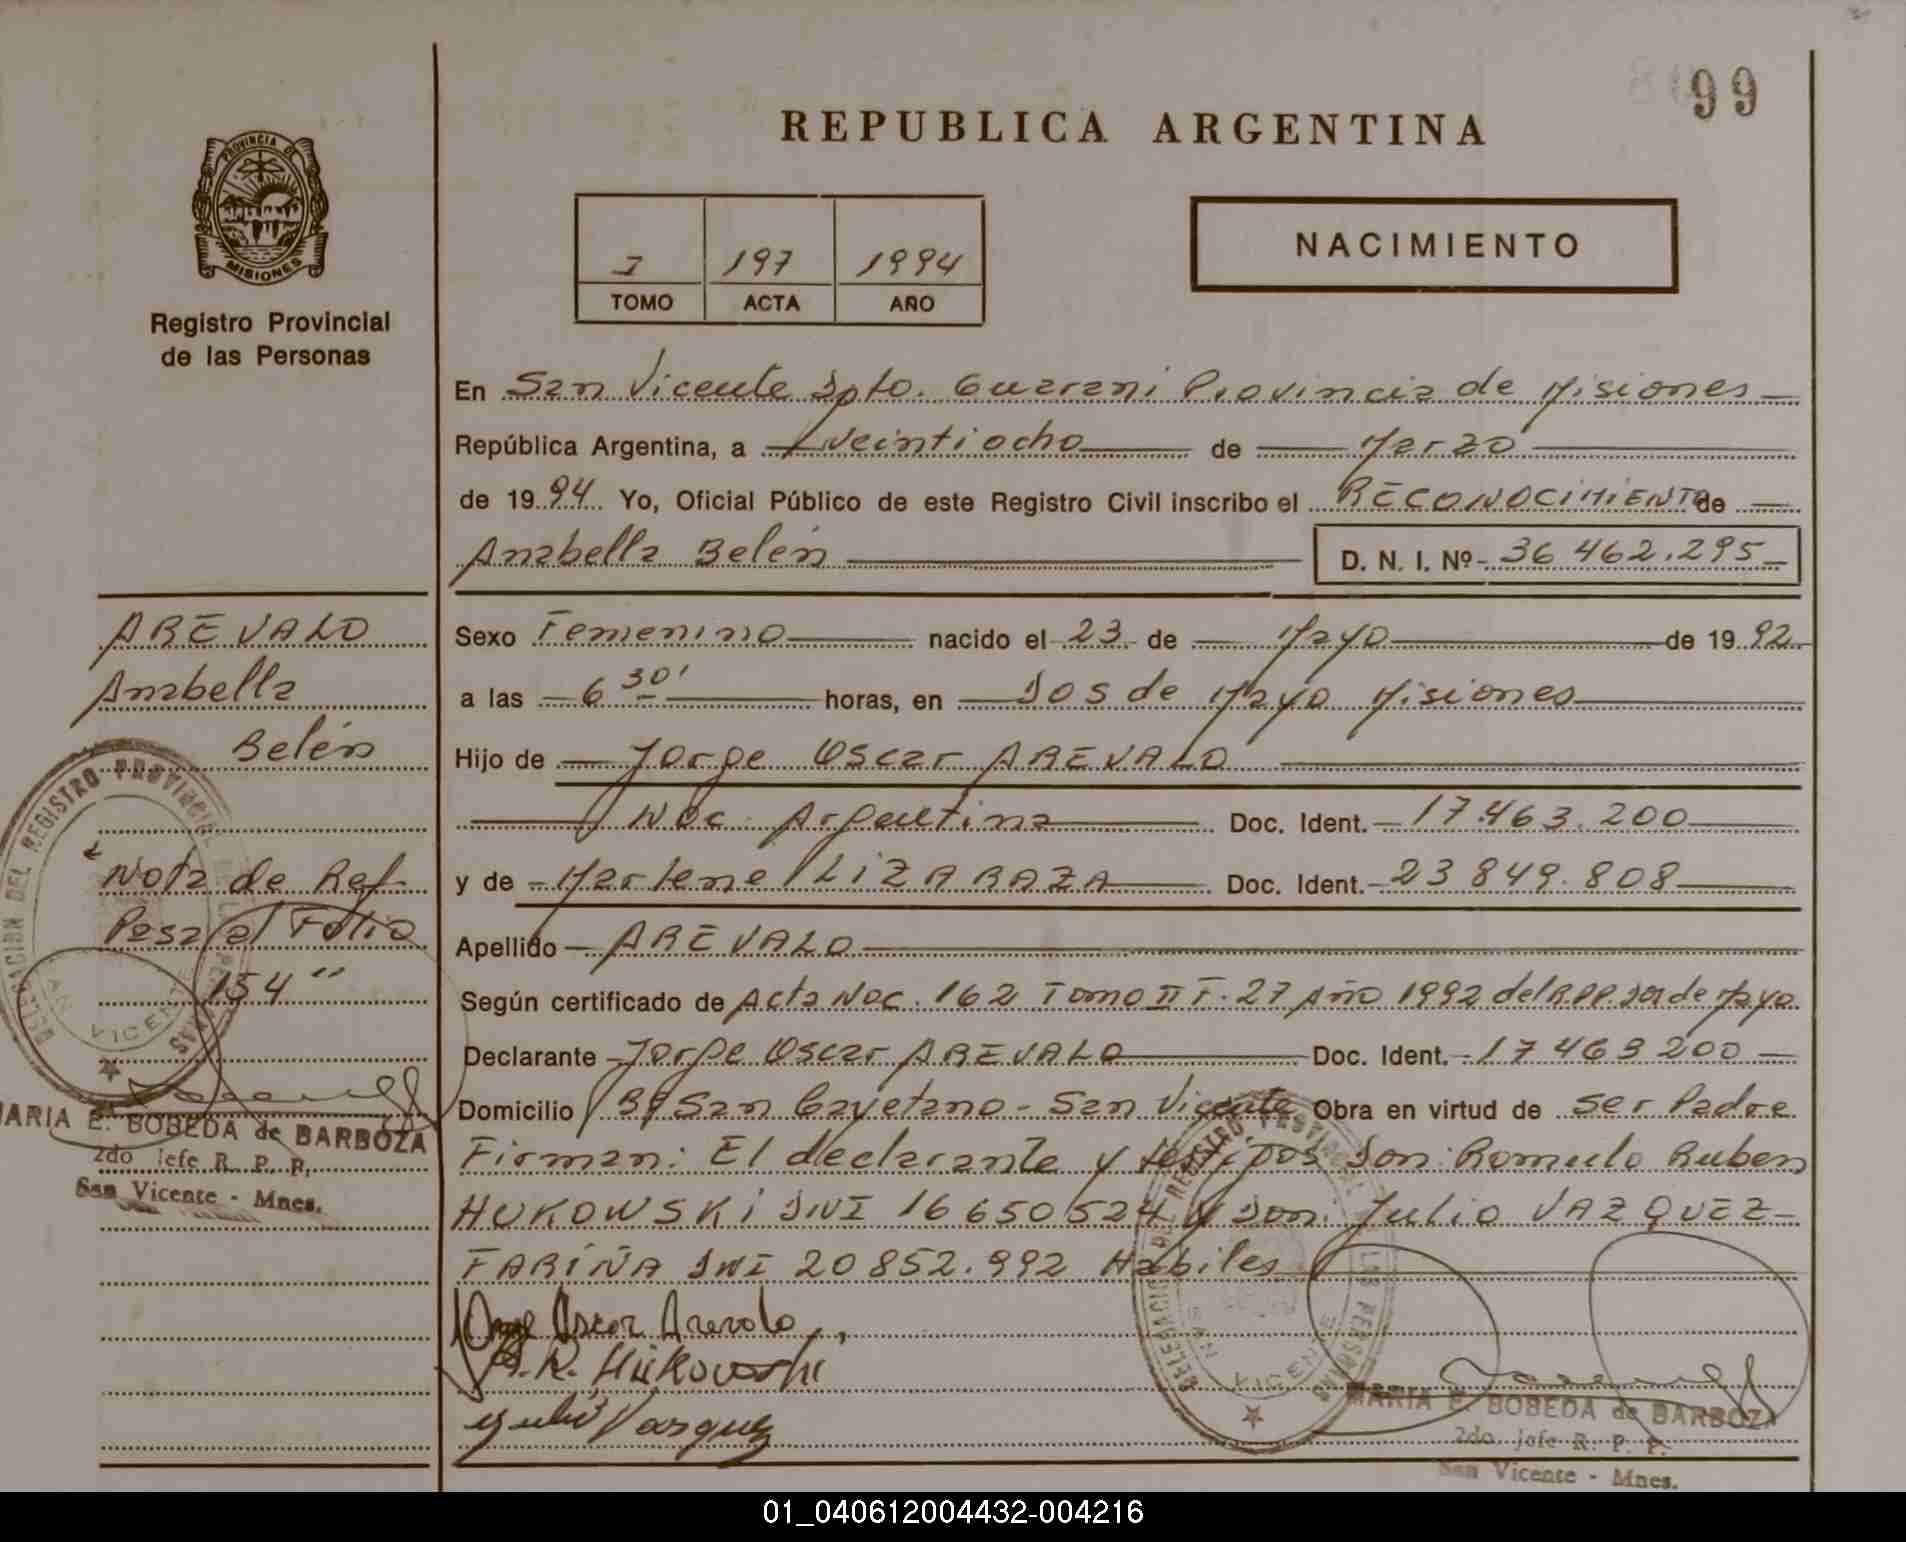 99
REPUBLICA ARGENTINA
PROVINCIA DE
MISIONES
Registro Provincial
de las Personas
I 197 1994
TOMO ACTA AÑO
NACIMIENTO
En San Vicente Dpto. Guarani Provincia de Misiones
República Argentina, a veintiocho de Marzo
de 1994 Yo, Oficial Público de este Registro Civil inscribo el RECONOCIMIENTO de
Anabella Belén D. N. I. Nº 36 462.295
Sexo Femenino nacido el 23 de Mayo de 1992
a las 6 30' horas, en Dos de Mayo Misiones
Hijo de Jorge Oscar AREVALO
Nac. Argentina Doc. Ident. 17.463.200
y de Marlene LIZARAZA Doc. Ident. 23 849.808
Apellido AREVALO
Según certificado de Acta Nac. 162 Tomo II F. 27 Año 1992 del R.P.P. Dos de Mayo
Declarante Jorge Oscar AREVALO Doc. Ident. 17 463 200
Domicilio Bº San Cayetano - San Vicente Obra en virtud de ser Padre
Firman: El declarante y testigos Don: Romulo Ruben
HUKOWSKI DNI 16 650 524 y Don. Julio VAZQUEZ
FARIÑA DNI 20 852.992 Habiles
Jorge Oscar Arevalo
R. R. Hukowski
Julio Vasquez
AREVALO
Anabella
Belén
Nota de Ref
Pasa al Folio
154"
DELEGACION DEL REGISTRO PROVINCIAL DE LAS PERSONAS
SAN VICENTE
MARIA E. BOBEDA de BARBOZA
2do Jefe R. P. P.
San Vicente - Mnes.
DELEGACION DEL REGISTRO PROVINCIAL DE LAS PERSONAS
SAN VICENTE
MARIA E. BOBEDA de BARBOZA
2do Jefe R. P. P.
San Vicente - Mnes.
01_040612004432-004216